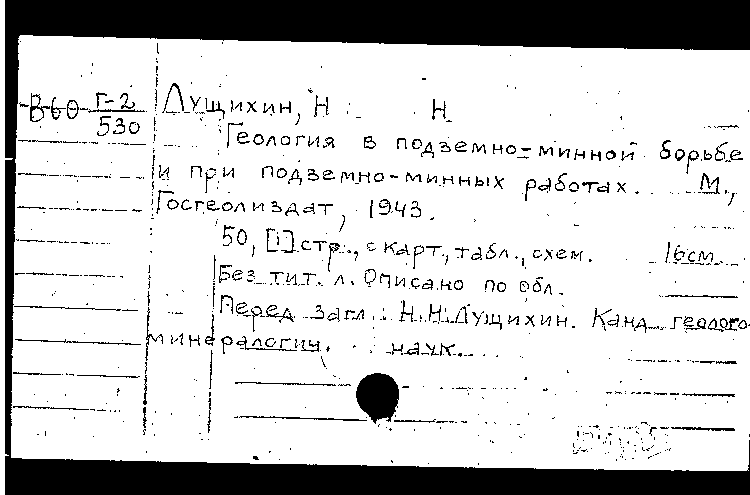 В60 Г-2 Лущихин, Н. Н
530
Геология в подземно-минной борьбе
и при подземно-минных работах. М.,
Госгеолиздат, 1943.
50, [1] стр., с карт, табл., схем. 16см.
Без тит. л. Описано по обл.
Перед загл.: Н.Н.Лущихин. Канд. геолого-
минералогич. наук.